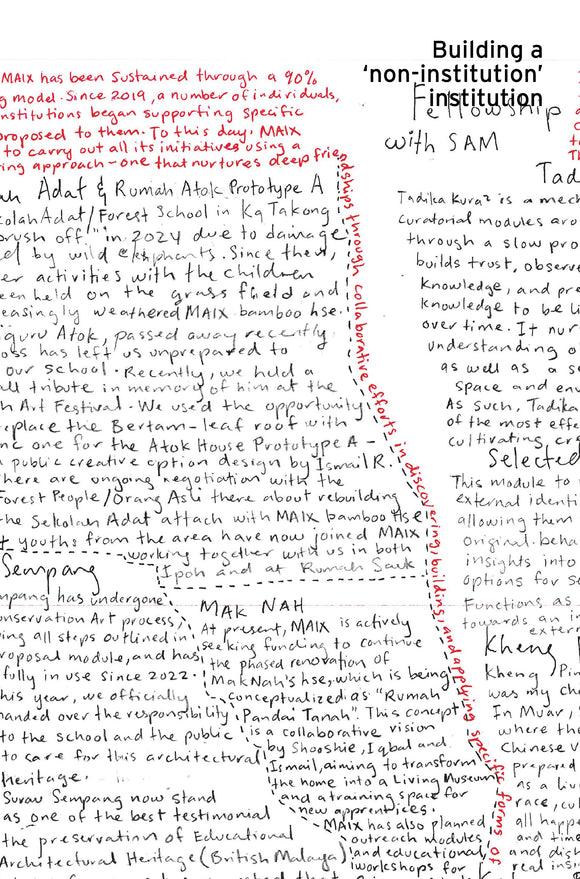 Building a
‘non-institution’
institution
MAIX has been sustained through a 90%
g model. Since 2019, a number of individuals,
nstitutions began supporting specific
proposed to them. To this day, MAIX
to carry out all its initiatives using a
ing approach – one that nurtures deep frie
ndships through collaborative efforts in discovering, building, and applying specific forms of
Fellowship
with SAM
ah Adat & Rumah Atok Prototype A
kolah Adat/Forest School in Kg Takong
brush off." in 2024 due to damage
ed by wild elephants. Since then,
er activities with the children
een held on the grass field and
easingly weathered MAIX bamboo hse.
guru Atok, passed away recently
oss has left us unprepared to
our school. Recently, we held a
all tribute in memory of him at the
h Art Festival. We used the opportunity
replace the Bertam-leaf roof with
nc one for the Atok House Prototype A –
a public creative option design by Ismail R.
here are ongoing negotiation with the
Forest People/Orang Asli there about rebuilding
the Sekolah Adat attach with MAIX bamboo Hse
t youths from the area have now joined MAIX
working together with us in both
Ipoh and at Rumah Sauk
Sempang
mpang has undergone
onservation Art process,
ing all steps outlined in
roposal module, and has
fully in use since 2022.
his year, we officially
handed over the responsibility
to the school and the public
to care for this architectural
heritage.
Surau Sempang now stand
as one of the best testimonial
the preservation of Educational
Architectural Heritage (British Malaya)
MAK NAH
At present, MAIX is actively
seeking funding to continue
the phased renovation of
Mak Nah's hse, which is being
conceptualized as "Rumah
Pandai Tanah". This concept
is a collaborative vision
by Shooshie, Iqbal and
Ismail, aiming to transform
the home into a Living Museum
and a training space for
new apprentices.
MAIX has also planned
outreach modules
and educational
workshops for
Tad
Tadika Kura² is a mech
Curatorial modules aro
through a slow pro
builds trust, observe
knowledge, and pre
knowledge to be li
over time. It nur
understanding o
as well as a se
space and env
As such, Tadika
of the most effe
cultivating, cr
Selected
This module to
external identi
allowing them
original beha
insights into
options for se
Functions as
towards an in
extern
Kheng
Kheng Pin
was my ch
In Muar,
where the
Chinese v
prepared
as a liv
race, cul
all happe
and time
and dish
real insi